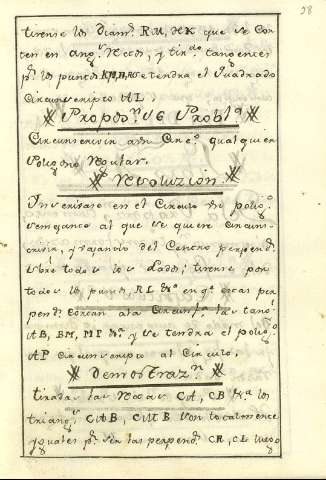 38
tirense los Diam.s RM, HK que se Cor
ten en ang.s Rectos, y tirad.s tangentes
p.r los puntos se tendra el Quadrado
Circunscripto AL.
Propos.n 16 Probl.a
Circunscrivir a un Circ.o qualquier
Poligono Regular.
Resoluzion.
Inscrivase en el Circulo un polig.o
semejante al que se quiere Circuns
crivir, y vajando del Centro perpend.s
sobre todos los Lados; tirense por
todos los puntos RL &.a en q.e estas per
pend.s cortan a la Circunf.a las tang.s
AB, BM, MP &.a y se tendra el polig.o
AP Circunscripto al Circulo.
Demostraz.n
tiradas las Rectas CA, CB &.a los
triang.s CAB, CMB son totalmente
yguales p.r ser las perpend.s CR, CL luego